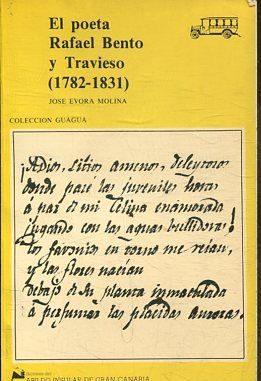 El poeta
Rafael Bento
y Travieso
(1782-1831)
JOSE EVORA MOLINA
COLECCION GUAGUA
¡Adios, sitios amenos, deleytosos
donde pacé las juveniles horas
á par de mi Felina enamorada
jugando con las aguas bullidoras!
los favonios en torno me reian,
y las flores nacian
debajo de su planta inmaculada
á perfumar las placidas auroras.
Ediciones del
CABILDO INSULAR DE GRAN CANARIA